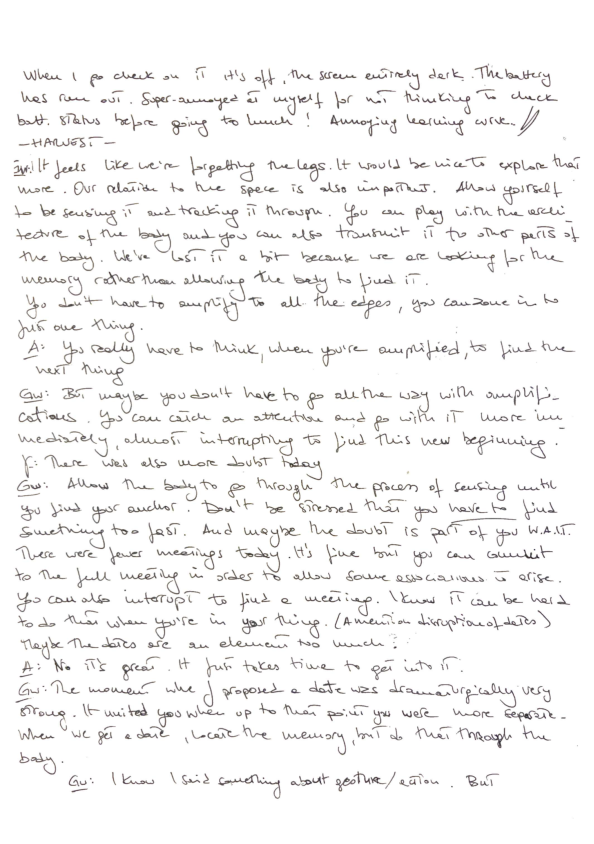 When I go check on it it's off, the screen entirely dark. The battery
has run out. Super-annoyed at myself for not thinking to check
batt. status before going to lunch! Annoying learning curve.
— HARVEST —
GW: It feels like we're forgetting the legs. It would be nice to explore that
more. Our relation to the space is also important. Allow yourself
to be sensing it and tracking it through. You can play with the archi-
tecture of the body and you can also transmit it to other parts of
the body. We've lost it a bit because we are looking for the
memory rather than allowing the body to find it.
You don't have to amplify to all the edges, you can zone in to
just one thing.
A: You really have to think, when you're amplified, to find the
next thing
GW: But maybe you don't have to go all the way with amplifi-
cations. You can catch an attention and go with it more im-
mediately, almost interrupting to find this new beginning.
F: There was also more doubt today
GW: Allow the body to go through the process of sensing until
you find your anchor. Don't be stressed that you have to find
something too fast. And maybe the doubt is part of you W.A.I.T.
There were fewer meetings today. It's fine but you can commit
to the full meeting in order to allow some associations to arise.
You can also interrupt to find a meeting. I know it can be hard
to do that when you're in your thing. (A mention disruption of dates)
Maybe the dates are an element too much?
A: No it's great. It just takes time to get into it.
GW: The moment whe J proposed a date was dramaturgically very
strong. It united you when up to that point you were more separate.
When we get a date, locate the memory, but do that through the
body.
GW: I know I said something about gesture/action. But